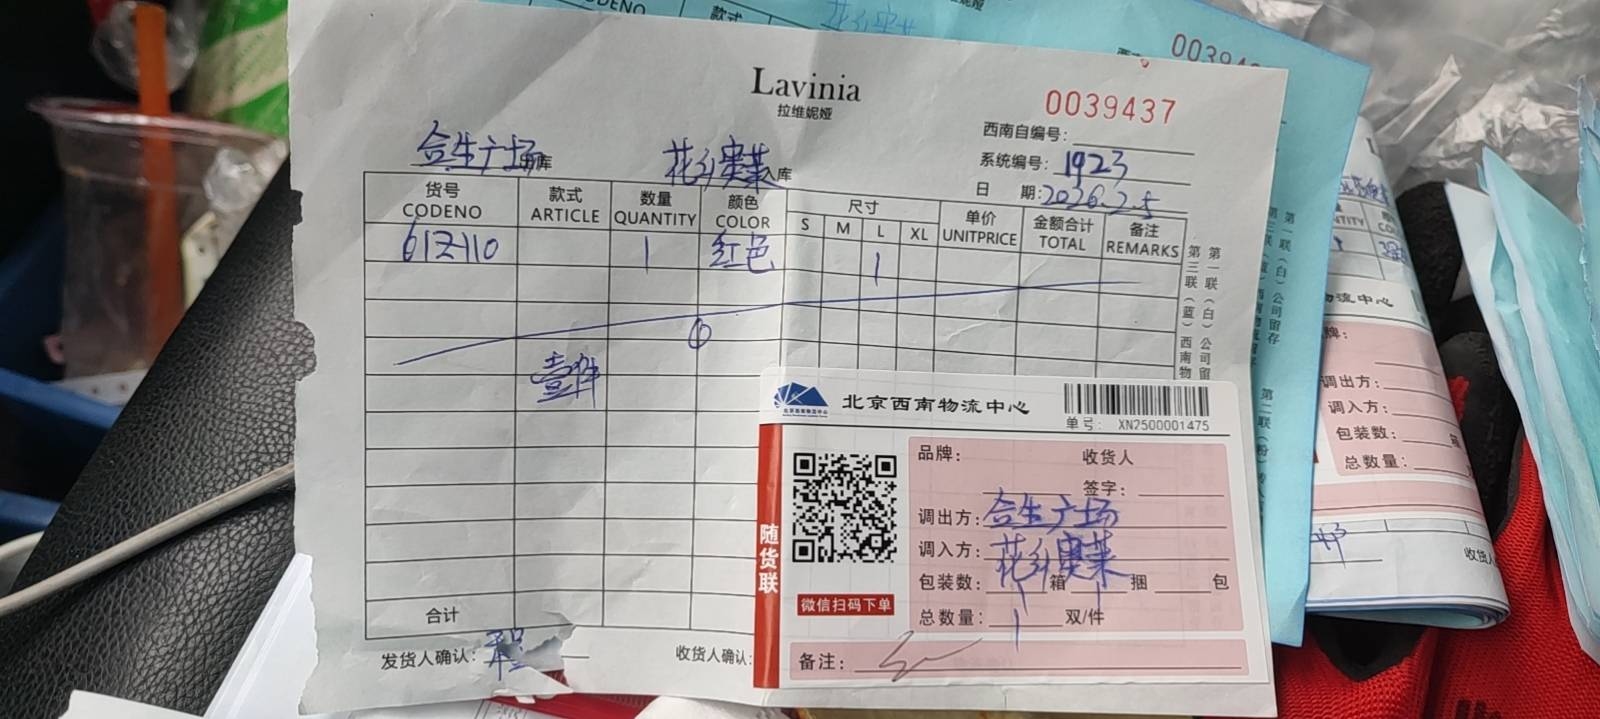 Lavinia
拉维妮娅
0039437
西南自编号:
系统编号: 1923
日 期: 2026.2.5
合生广场 出库 花乡奥莱 入库
货号 款式 数量 颜色 尺寸 单价 金额合计 备注
CODENO ARTICLE QUANTITY COLOR S M L XL UNITPRICE TOTAL REMARKS
61Z110 1 红色 1
①
壹件
合计
发货人确认:
收货人确认:
第一联(白)公司留存
第二联(粉)
第三联(蓝)西南物
北京西南物流中心
单号: XN2500001475
随货联
微信扫码下单
品牌: 收货人
签字:
调出方: 合生广场
调入方: 花乡奥莱
包装数: 1 箱 1 捆 包
总数量: 1 双/件
备注:
款式
物流中心
调出方:
调入方:
包装数:
总数量: